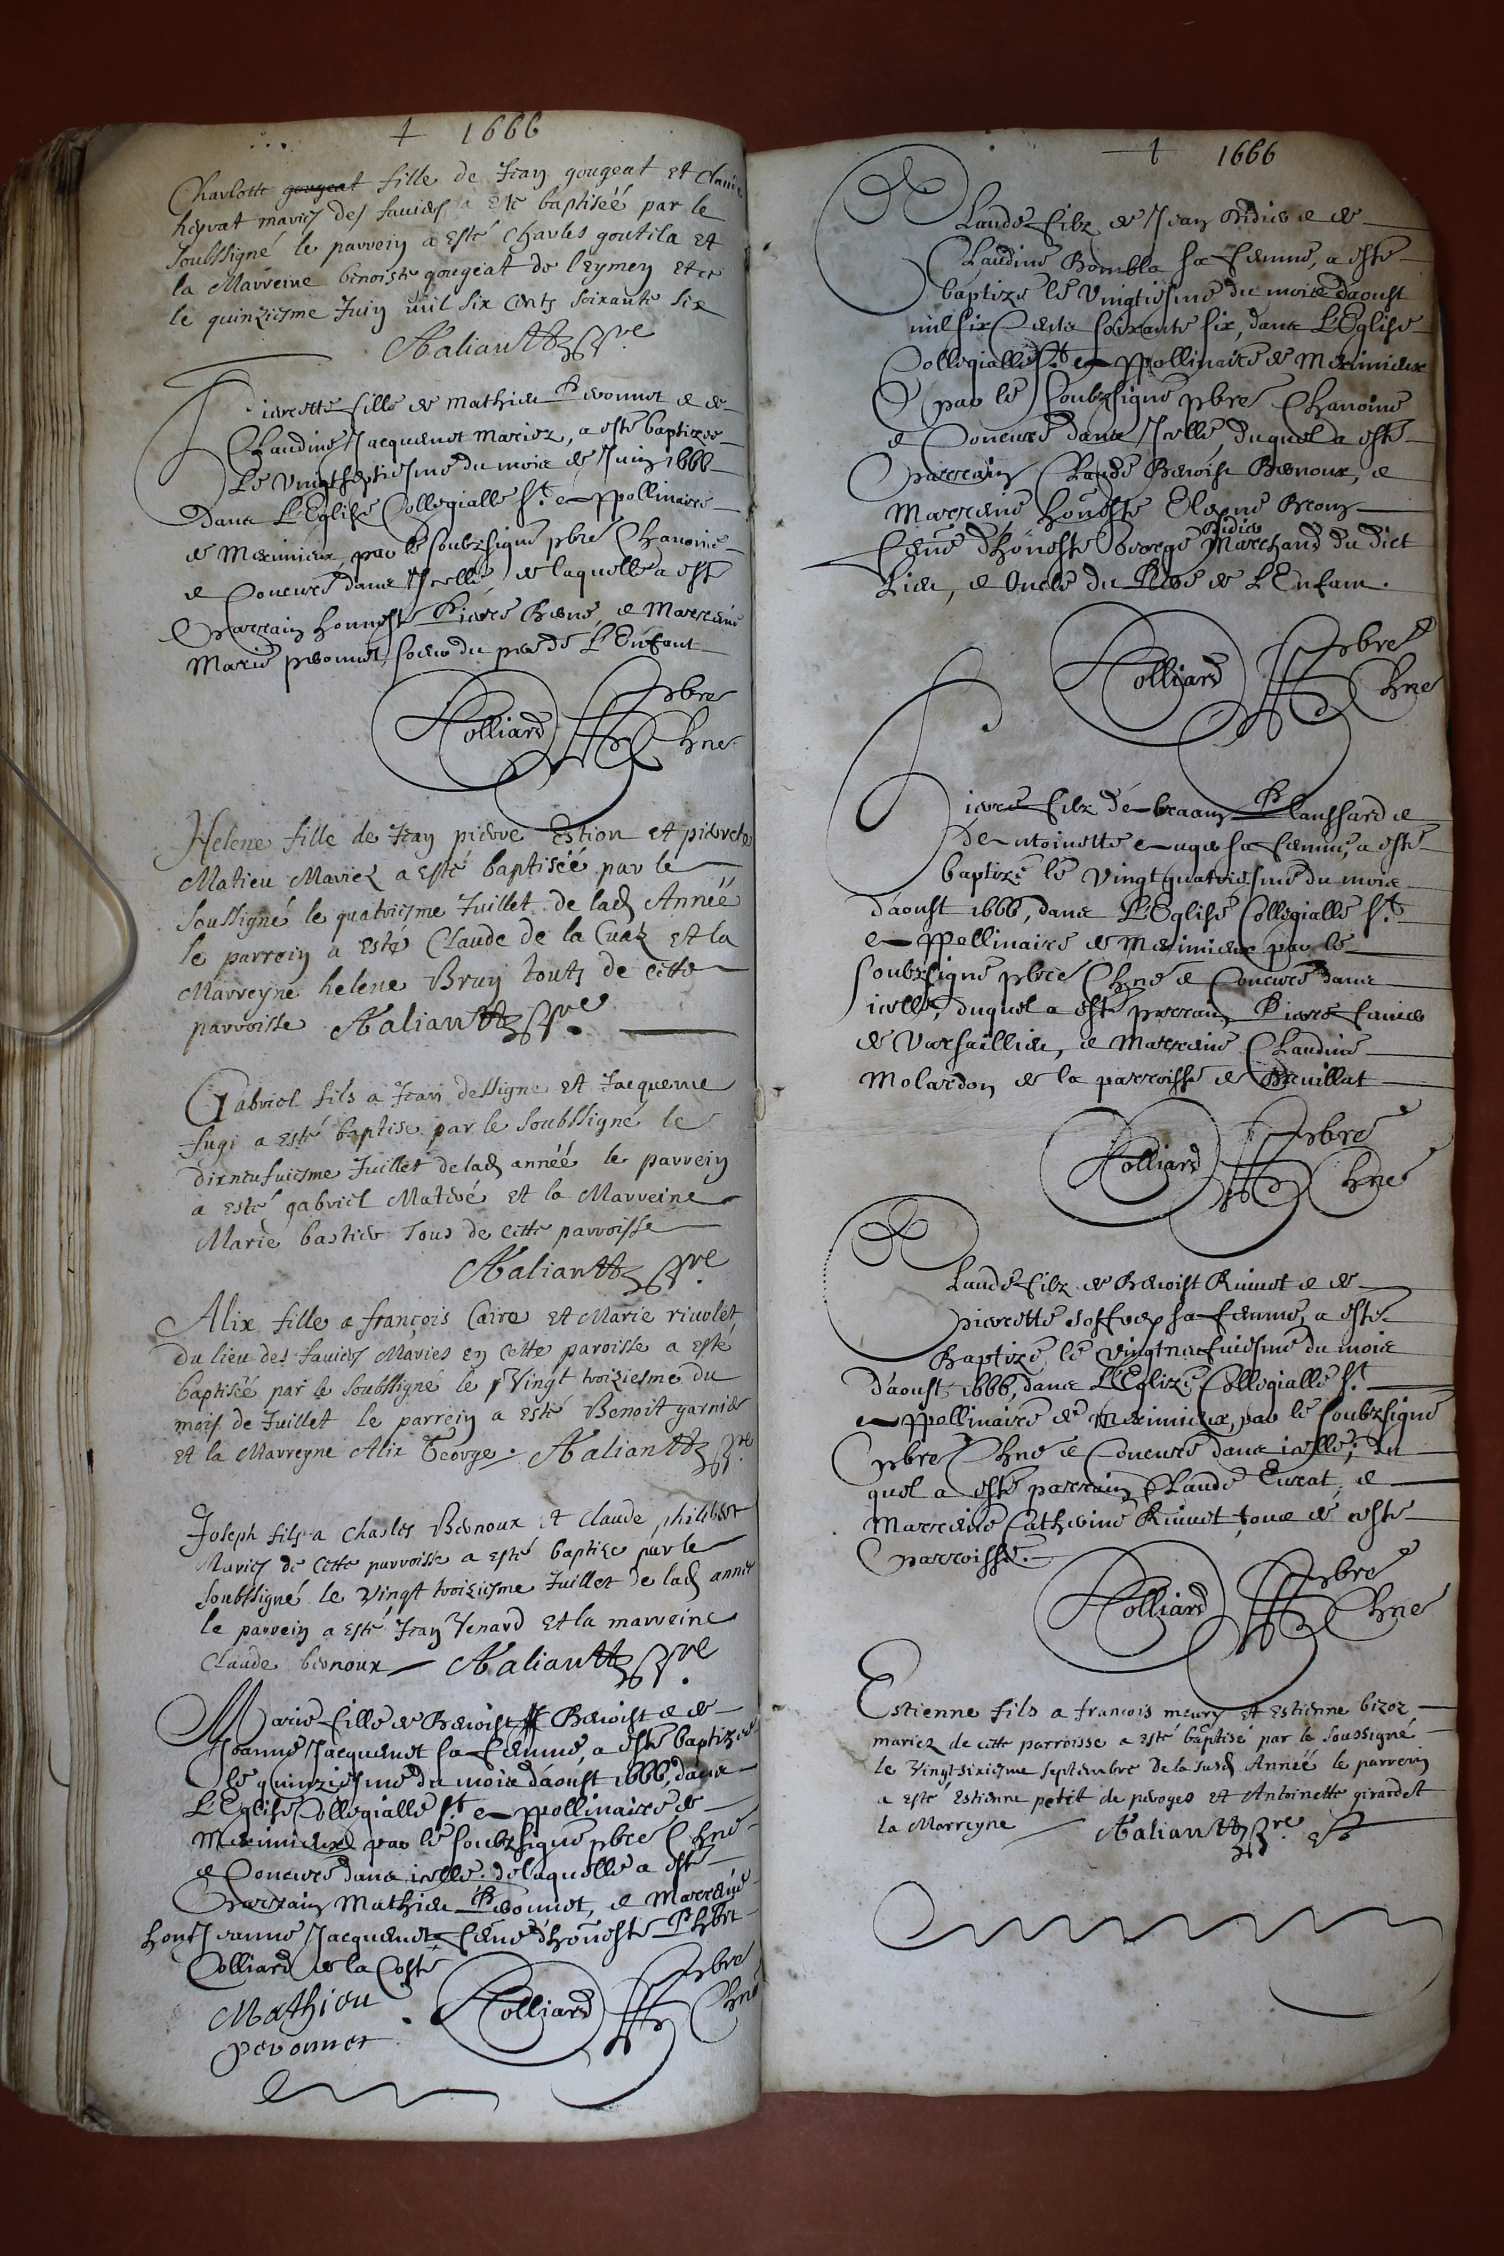 + 1666
Charlotte gougeat fille de Jean gougeat et Claude
heyrat mariés des fauies a este baptiséé par le
soubssigné le parrein a esté Charles goutila et
la Marreine benoiste gougeat de leymen et ce
le quinziesme Juin mil six cents soixante six
Aaliantt pre
Pierrette fille de Mathieu Peronnet e de
Claudine Jacquemet mariez, a esté baptizee
Le vingtseptiesme du mois de Juin 1666
dans L'Eglize Collegialle St. Appollinaire
de Meximieux, par le soubzsigné pbre Chanoine
e Concuré dans Jcelle, de laquelle a esté
Parrain honneste Pierre Bené, e Marrene
Marie peronnet, soeur du pere de L'Enfant
Colliard pbre
Chne
Helene fille de Jean pierre Estion et pierrete
Matieu Mariez a esté baptiséé par le
soussigné le quatriesme Juillet de lad Annéé
le parrein a esté Claude de la Cuaz et la
Marreyne helene Brun touts de cette
parroisse Aaliantt pre
Gabriel fils a Jean dessigne et Jacqueme
fugi a esté baptise par le soubssigné le
dixneufuiesme Juillet de lad annéé le parrein
a esté gabriel Materé et la Marreine
Marie bastier tous de cette parroisse
Aaliantt pre
Alix fille a françois Caire et Marie riuolet
du lieu des fauies Mariés en cette paroisse a esté
baptiséé par le soubssigné le vingt troiziesme du
mois de Juillet le parrein a esté Benoit garnier
et la Marreyne Alix George. Aaliantt pre
Joseph fils a Charles Bernoux et Claude philibert
Mariés de cette parroisse a esté baptize par le
soubssigné le vingt troiziesme Juillet de lad année
le parrein a esté Jean Venard et la marreine
Claude bernoux Aaliantt pre
Marie fille de Benoist Benoist e de
Jeanne Jacquemet sa femme, a esté baptizee
le quinziesme du mois d'aoust 1666, dans
L'Eglise Collegialle St. Appollinaire de
Meximieux par le soubzsigné pbre Chne
e Concuré dans icelle. de laquelle a esté
Parrain Mathieu Peronnet, e Marrene
honte Jeanne Jacquemet feme d'honeste Phbert
Colliard de la Coste
Mathieu
peronnet
Colliard pbre
Chne
+ 1666
Claude filz de Jean Didier e de
Claudine Bombla sa femme, a esté
baptizé le vingtiesme du mois d'aoust
mil six Cents soixante six, dans L'Eglise
Collegialle St. Appollinaire de Meximieux
par le soubzsigné pbre Chanoine
e Concuré dans Jcelle, duquel a esté
Parrain Claude Benoist Bernoux, e
Marrene honeste Eleyne
feme d'honeste George Didier Marchand du dict
Lieu, e oncle du Pere de L'Enfan.
Colliard pbre
Chne
Pierre filz de Planssard e
D'Antoinette sa femme, a esté
baptizé le vingtquatriesme du mois
d'aoust 1666, dans L'Eglise Collegialle St.
Appollinaire de Meximieux par le
soubzsigné pbre Chne e Concuré dans
icelle, duquel a esté parrain Pierre fauier
de Versaillieu, e Marrene Claudine
Molardon de la parroisse de Druillat
Colliard pbre
Chne
Claude filz de Benoist Riuuet e de
pierrette sa femme, a esté
Baptizé le vingtneufuiesme du mois
d'aoust 1666, dans L'Eglize Collegialle St.
Appollinaire de Meximieux, par le soubzsigné
pbre Chne e Concuré dans icelle, du
quel a esté parrain Claude Eurat, e
Marrene Catherine Riuuet, tous de ceste
Parroisse.
Colliard pbre
Chne
Estienne fils a francois meury et estienne bizoz
mariez de cette parroisse a esté baptisé par le soussigné
le vingtsixiesme septembre de la susd Annéé le parrein
a esté Estienne petit de peroges et Antoinette girardet
la Marreyne Aaliantt pre